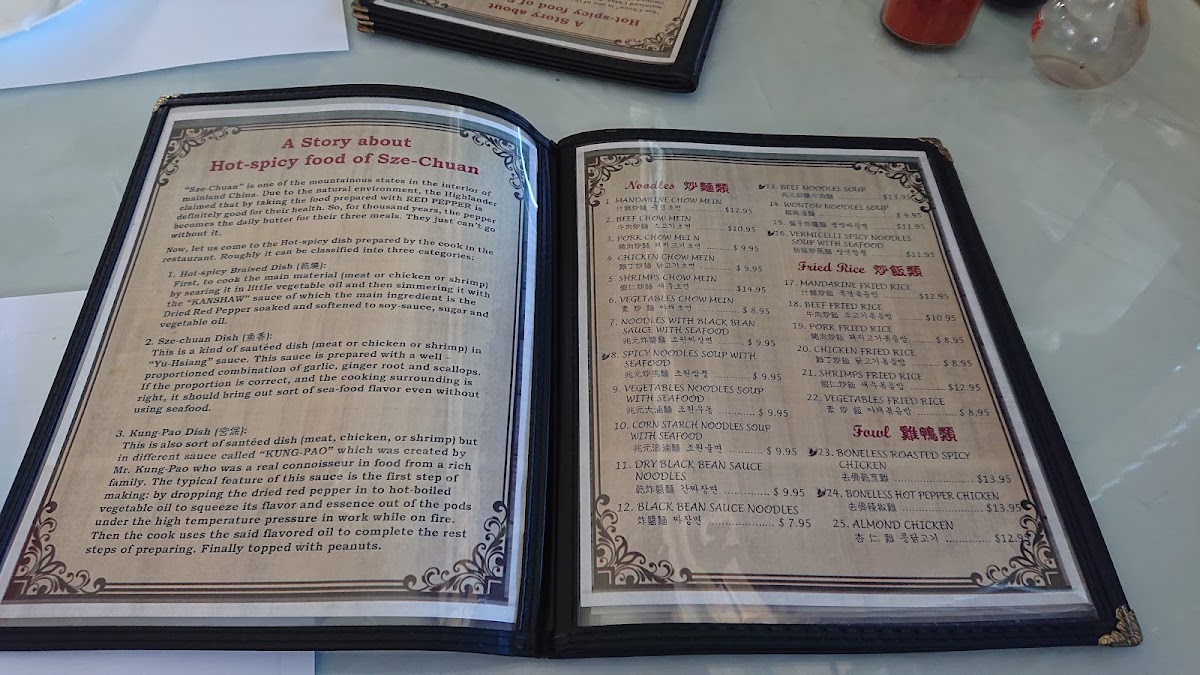 A Story about
Hot-spicy food of S
A Story about
Hot-spicy food of Sze-Chuan
"Sze-Chuan" is one of the mountainous states in the interior of
mainland China. Due to the natural environment, the Highlander
claimed that by taking the food prepared with RED PEPPER is
definitely good for their health. So, for thousand years, the pepper
becomes the daily butter for their three meals. They just can't go
without it.
Now, let us come to the Hot-spicy dish prepared by the cook in the
restaurant. Roughly it can be classified into three categories:
1. Hot-spicy Braised Dish (乾燒):
First, to cook the main material (meat or chicken or shrimp)
by searing it in little vegetable oil and then simmering it with
the "KANSHAW" sauce of which the main ingredient is the
Dried Red Pepper soaked and softened to soy-sauce, sugar and
vegetable oil.
2. Sze-chuan Dish (魚香):
This is a kind of sautéed dish (meat or chicken or shrimp) in
"Yu-Hsiang" sauce. This sauce is prepared with a well –
proportioned combination of garlic, ginger root and scallops.
If the proportion is correct, and the cooking surrounding is
right, it should bring out sort of sea-food flavor even without
using seafood.
3. Kung-Pao Dish (宮保):
This is also sort of sautéed dish (meat, chicken, or shrimp) but
in different sauce called "KUNG-PAO" which was created by
Mr. Kung-Pao who was a real connoisseur in food from a rich
family. The typical feature of this sauce is the first step of
making: by dropping the dried red pepper in to hot-boiled
vegetable oil to squeeze its flavor and essence out of the pods
under the high temperature pressure in work while on fire.
Then the cook uses the said flavored oil to complete the rest
steps of preparing. Finally topped with peanuts.
Noodles 炒麵類
1. MANDARINE CHOW MEIN
什錦炒麵 특멘초면 ........ $12.95
2. BEEF CHOW MEIN
牛肉炒麵 소고기초면 ........ $10.95
3. PORK CHOW MEIN
豬肉炒麵 돼지고기초면 ........ $ 9.95
4. CHICKEN CHOW MEIN
雞丁炒麵 닭고기초면 ........ $ 9.95
5. SHRIMPS CHOW MEIN
蝦仁炒麵 새우초면 ........ $14.95
6. VEGETABLES CHOW MEIN
素炒麵 야채초면 ........ $ 8.95
7. NOODLES WITH BLACK BEAN
SAUCE WITH SEAFOOD
兆元炸醬麵 조원짜장면 ........ $ 9.95
8. SPICY NOODLES SOUP WITH
SEAFOOD
兆元炒馬麵 조원짬뽕 ........ $ 9.95
9. VEGETABLES NOODLES SOUP
WITH SEAFOOD
兆元大滷麵 조원우동 ........ $ 9.95
10. CORN STARCH NOODLES SOUP
WITH SEAFOOD
兆元溫滷麵 조원울면 ........ $ 9.95
11. DRY BLACK BEAN SAUCE
NOODLES
乾炸醬麵 간짜장면 ........ $ 9.95
12. BLACK BEAN SAUCE NOODLES
炸醬麵 짜장면 ........ $ 7.95
13. BEEF NOODLES SOUP
$13.95
14. WONTON NOODLES SOUP
$ 9.95
15.
$11.95
16. VERMICELLI SPICY NOODLES
SOUP WITH SEAFOOD
$11.95
Fried Rice 炒飯類
17. MANDARINE FRIED RICE
什錦炒飯 특멘볶음밥 ........ $12.95
18. BEEF FRIED RICE
牛肉炒飯 소고기볶음밥 ........ $10.95
19. PORK FRIED RICE
豬肉炒飯 돼지고기볶음밥 ........ $ 8.95
20. CHICKEN FRIED RICE
雞丁炒飯 닭고기볶음밥 ........ $ 8.95
21. SHRIMPS FRIED RICE
蝦仁炒飯 새우볶음밥 ........ $12.95
22. VEGETABLES FRIED RICE
素炒飯 야채볶음밥 ........ $ 8.95
Fowl 雞鴨類
23. BONELESS ROASTED SPICY
CHICKEN
去骨乾烹雞 ........ $13.95
24. BONELESS HOT PEPPER CHICKEN
去骨辣椒雞 ........ $13.95
25. ALMOND CHICKEN
杏仁雞 콩닭고기 ........ $12.95